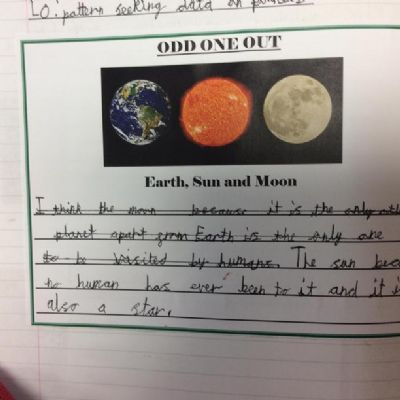 LO: pattern seeking data on
ODD ONE OUT
Earth, Sun and Moon
I think the moon because it is the only
planet apart from Earth is the only one
to be visited by humans. The sun
no human has ever been to it and it
also a star.